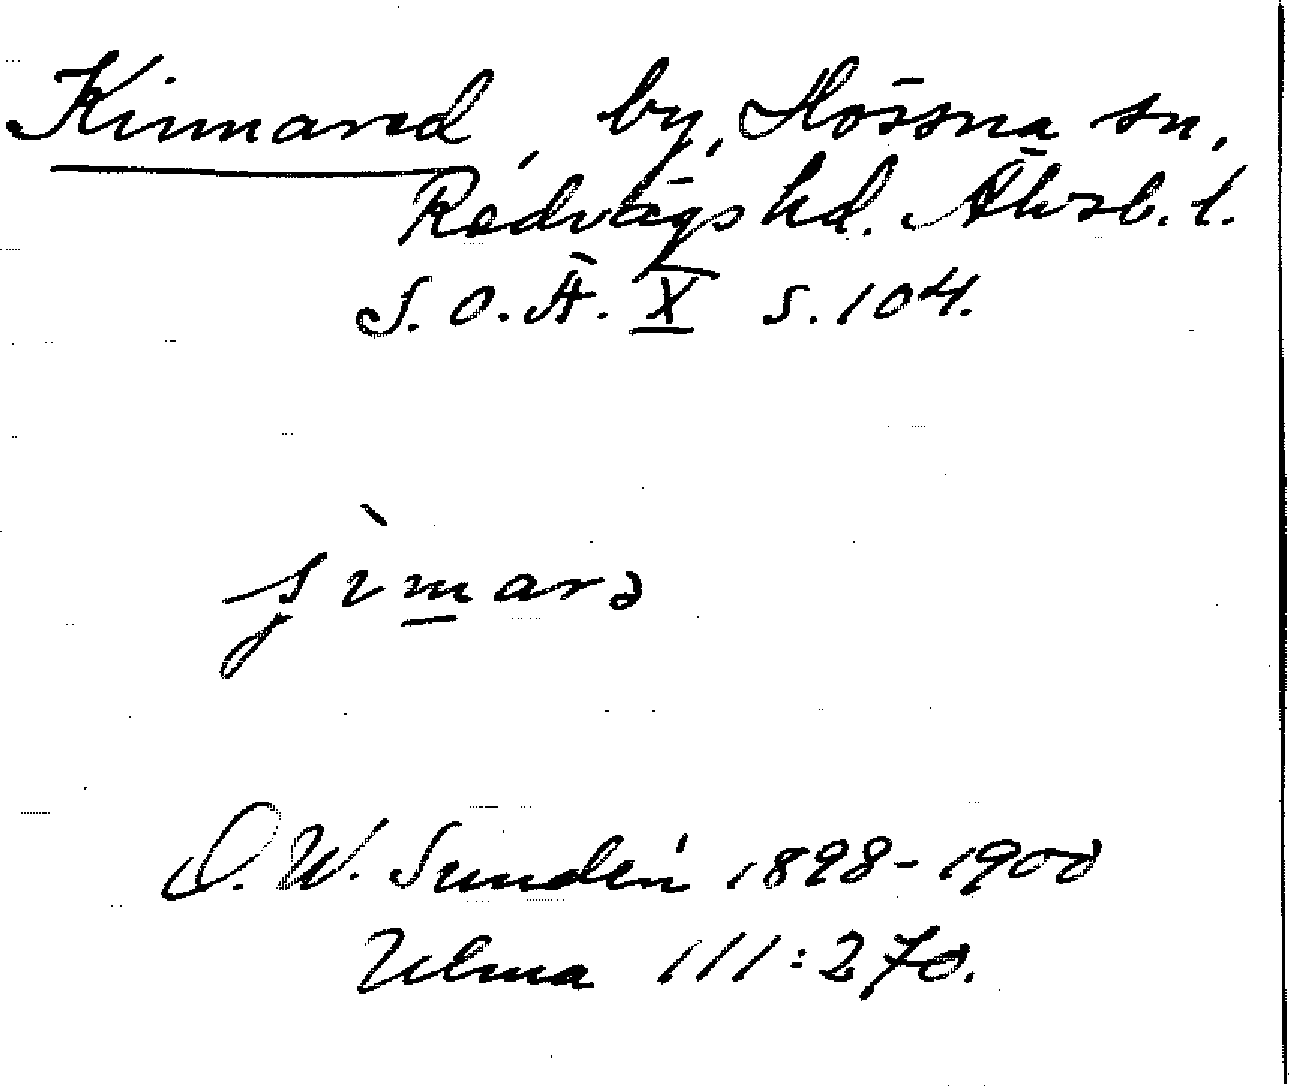 Kinnared, by, Hössna sn,
Redvägs hd. Älvsb. l.
S.O.Ä. X s. 104.
D. W. Sundén 1898-1900
Ulma 111:270.